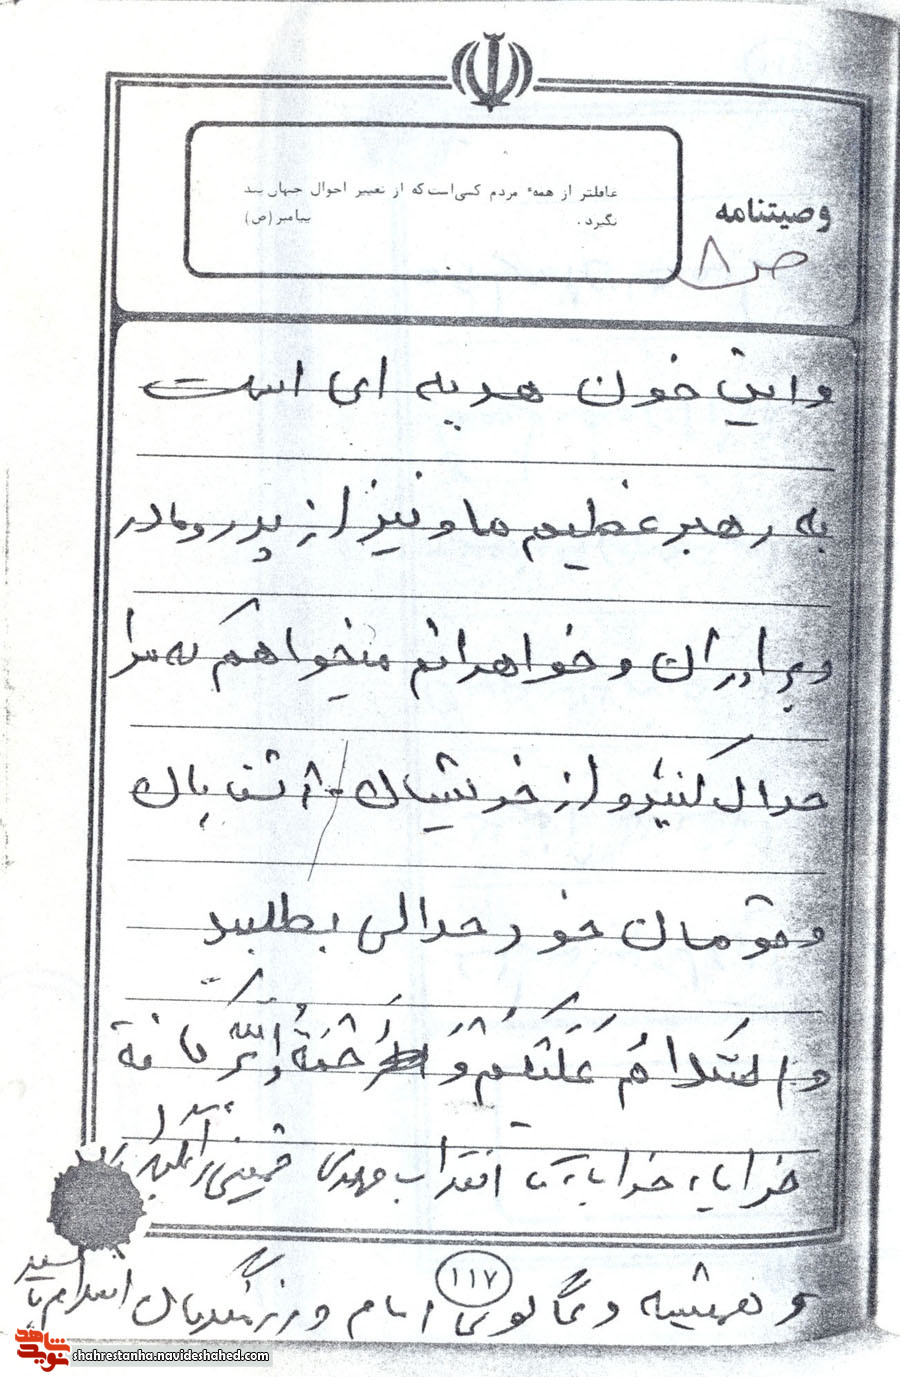 غافلتر از همهٔ مردم کسی است که از تغییر احوال جهان پند
نگیرد. پیامبر (ص)
وصیتنامه
ص ۸
و این خون هدیه ای است
به رهبر عظیم ما و نیز از پدر و مادر
و برادران و خواهرانم میخواهم که مرا
حلال کنید و از خویشان آشنایان
و قومان خود حلالی بطلبید
والسلام علیکم و رحمة الله و برکاته
خدایا، خدایا، تا انقلاب مهدی خمینی را نگهدار
و همیشه دعاگوی امام و رزمندگان اسلام باشید
۱۱۷
shahrestanha.navideshahed.com